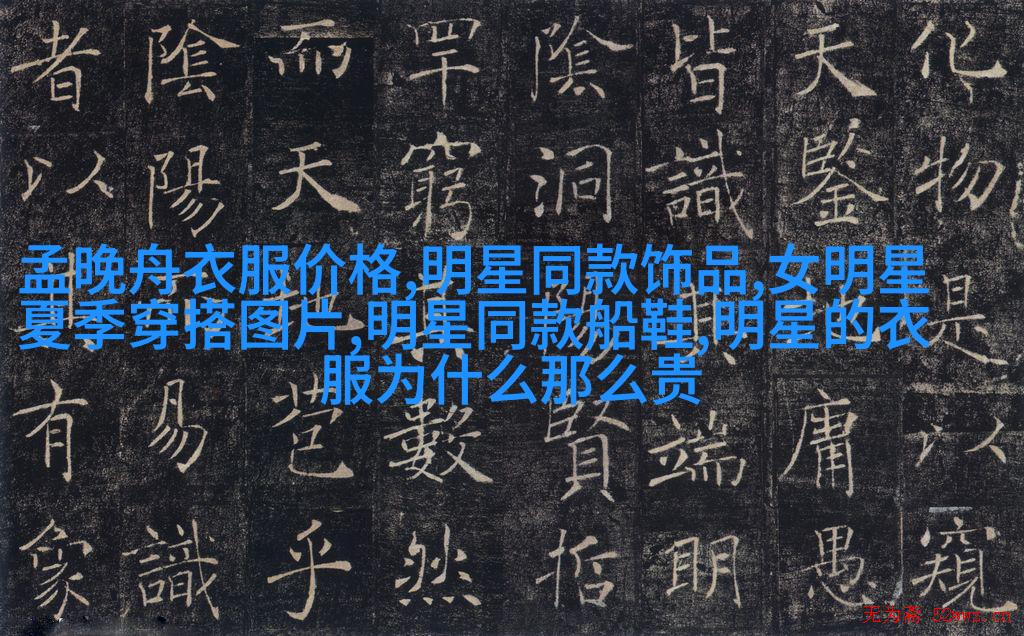 化物是以窺
天鑒地庸愚
皆識其端明
陰洞陽賢哲
罕窮其數然
而天地苞乎
陰陽而易識
者以其有象
孟晚舟衣服价格,明星同款饰品,女明星
夏季穿搭图片,明星同款船鞋,明星的衣
服为什么那么贵
无为斋 52wwz.cn